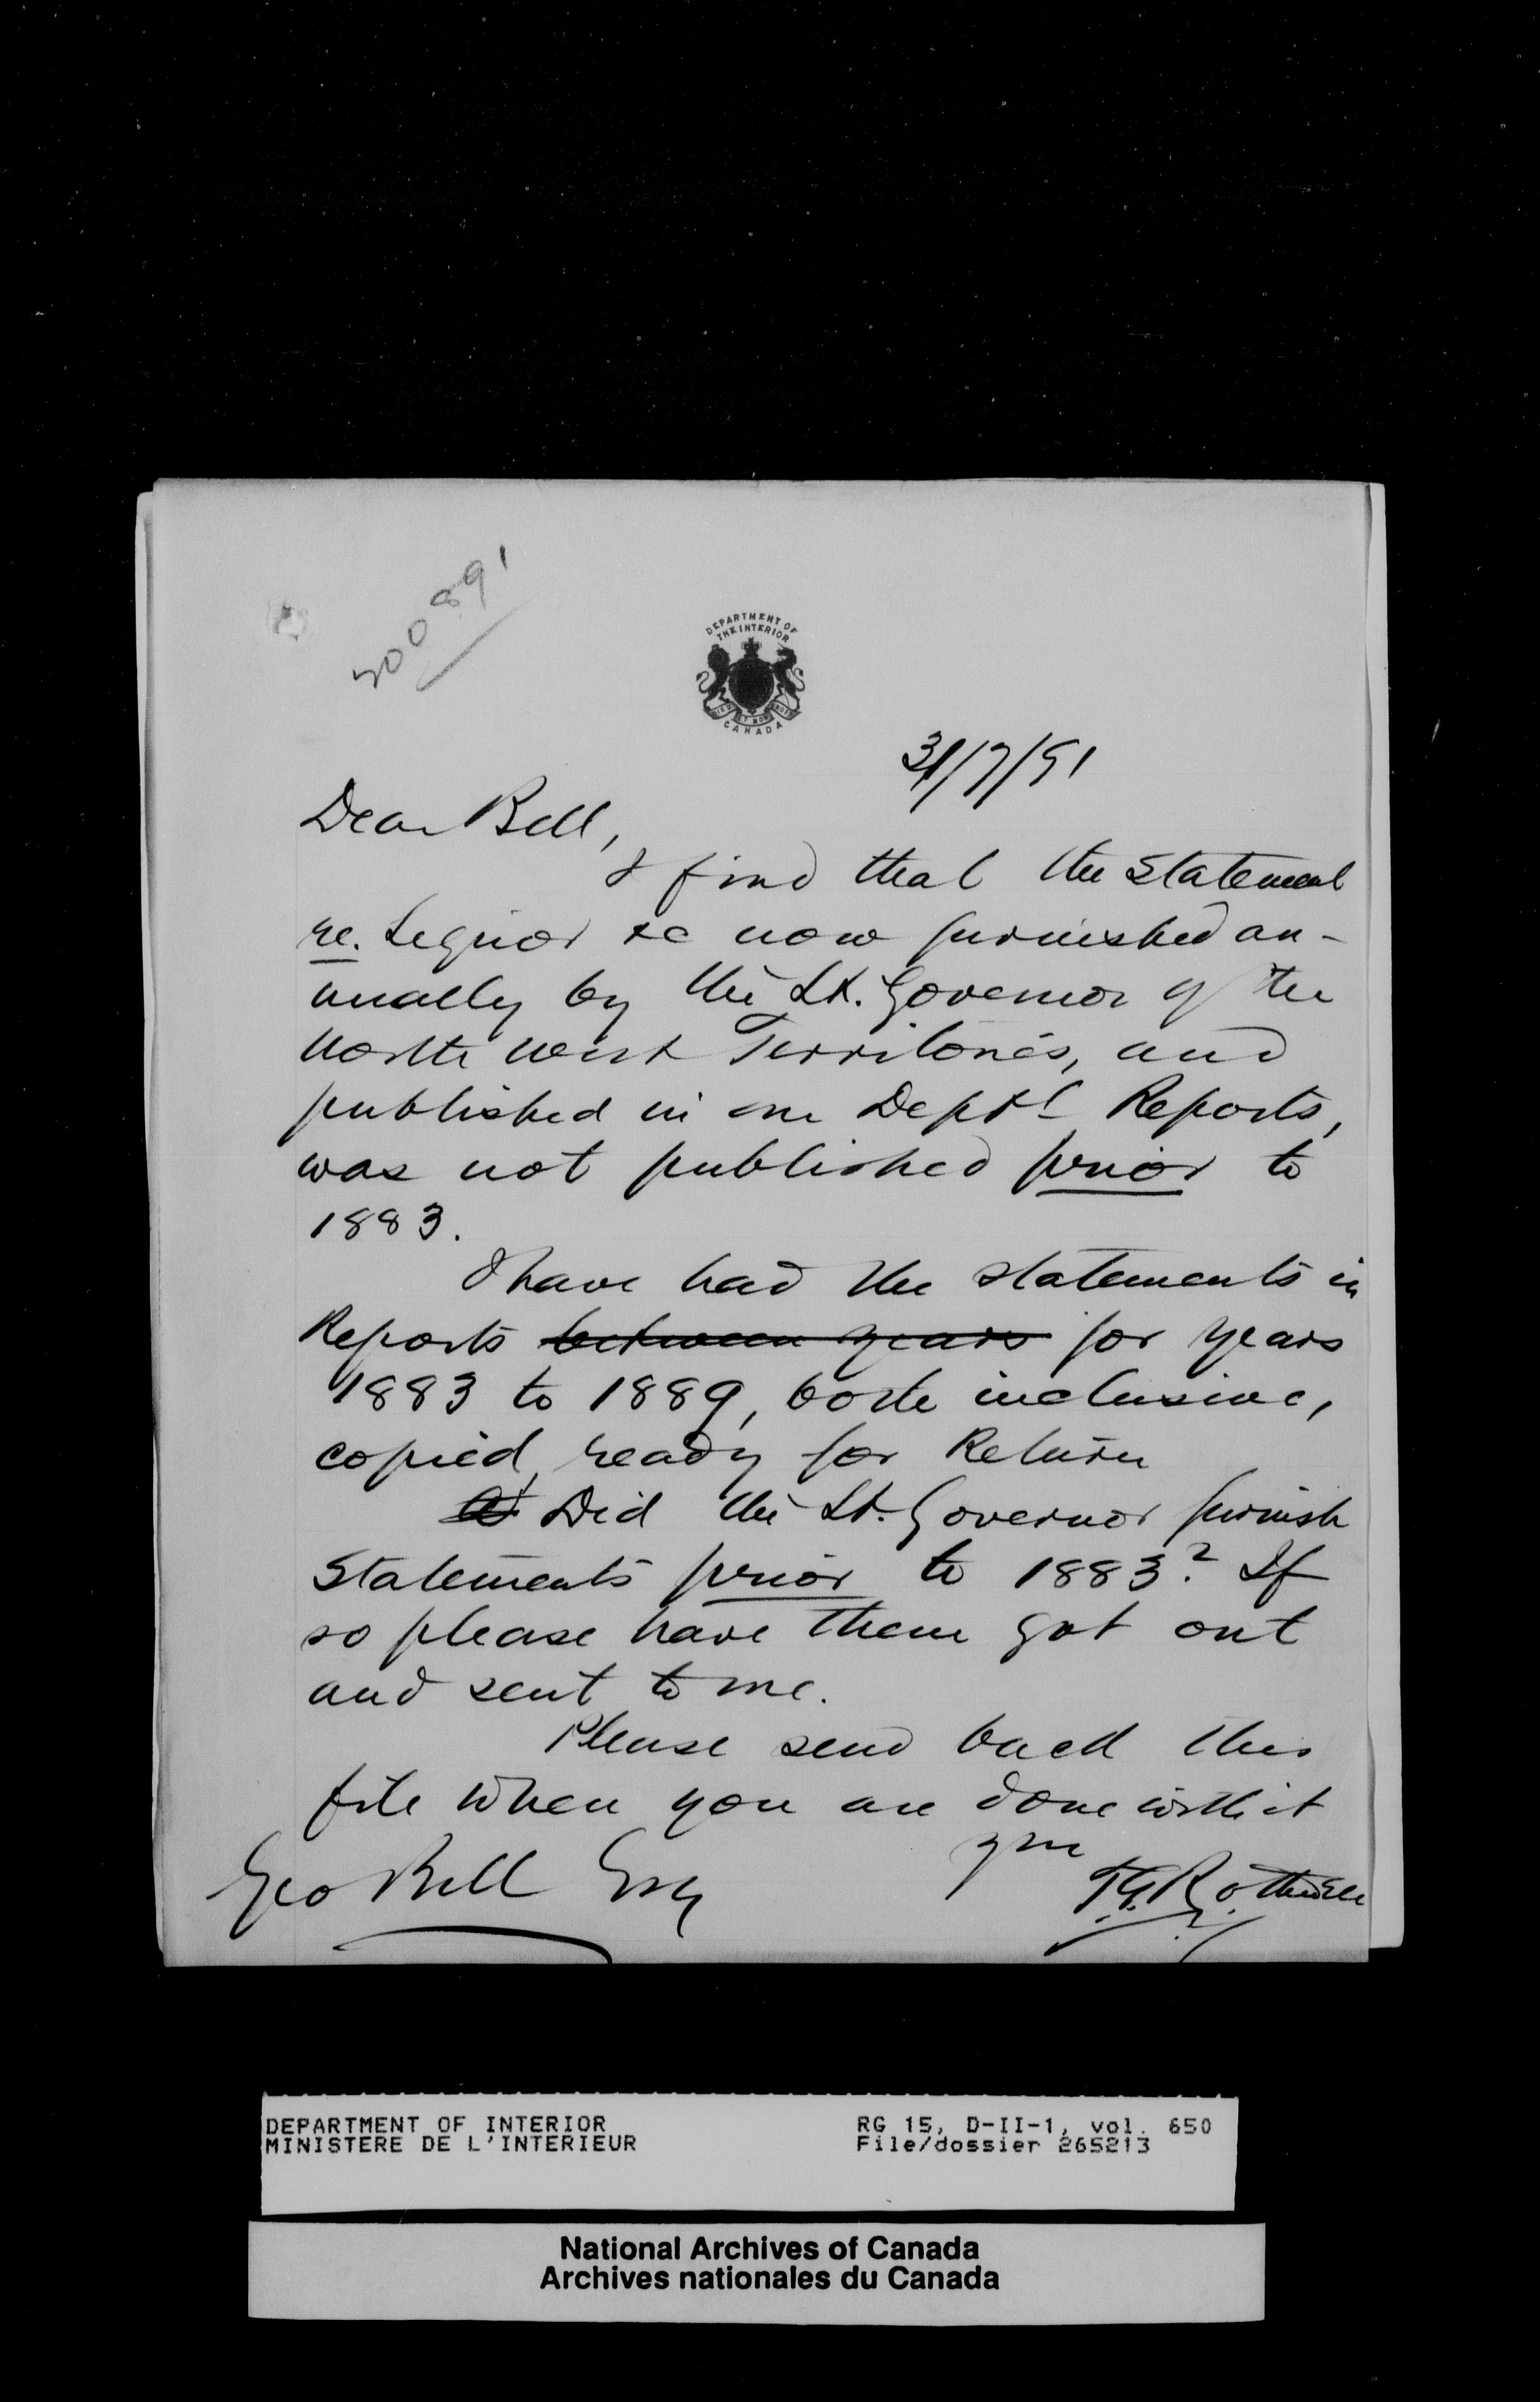 300891
DEPARTMENT OF
THE INTERIOR
CANADA
31/7/91
Dear Bell,
I find that the Statement
re. Liquor &c now furnished an-
nually by the Lt. Governor of the
North West Territories, and
published in our Deptl Reports,
was not published prior to
1883.
I have had the statements in
Reports between years for years
1883 to 1889, both inclusive,
copied, ready for Return
Did the Lt. Governor furnish
Statements prior to 1883? If
so please have them got out
and sent to me.
Please send back this
file when you are done with it
Yrs
Geo Bell Esq
T.G. Rothwell
DEPARTMENT OF INTERIOR
MINISTERE DE L'INTERIEUR
RG 15, D-II-1, vol. 650
File/dossier 265213
National Archives of Canada
Archives nationales du Canada